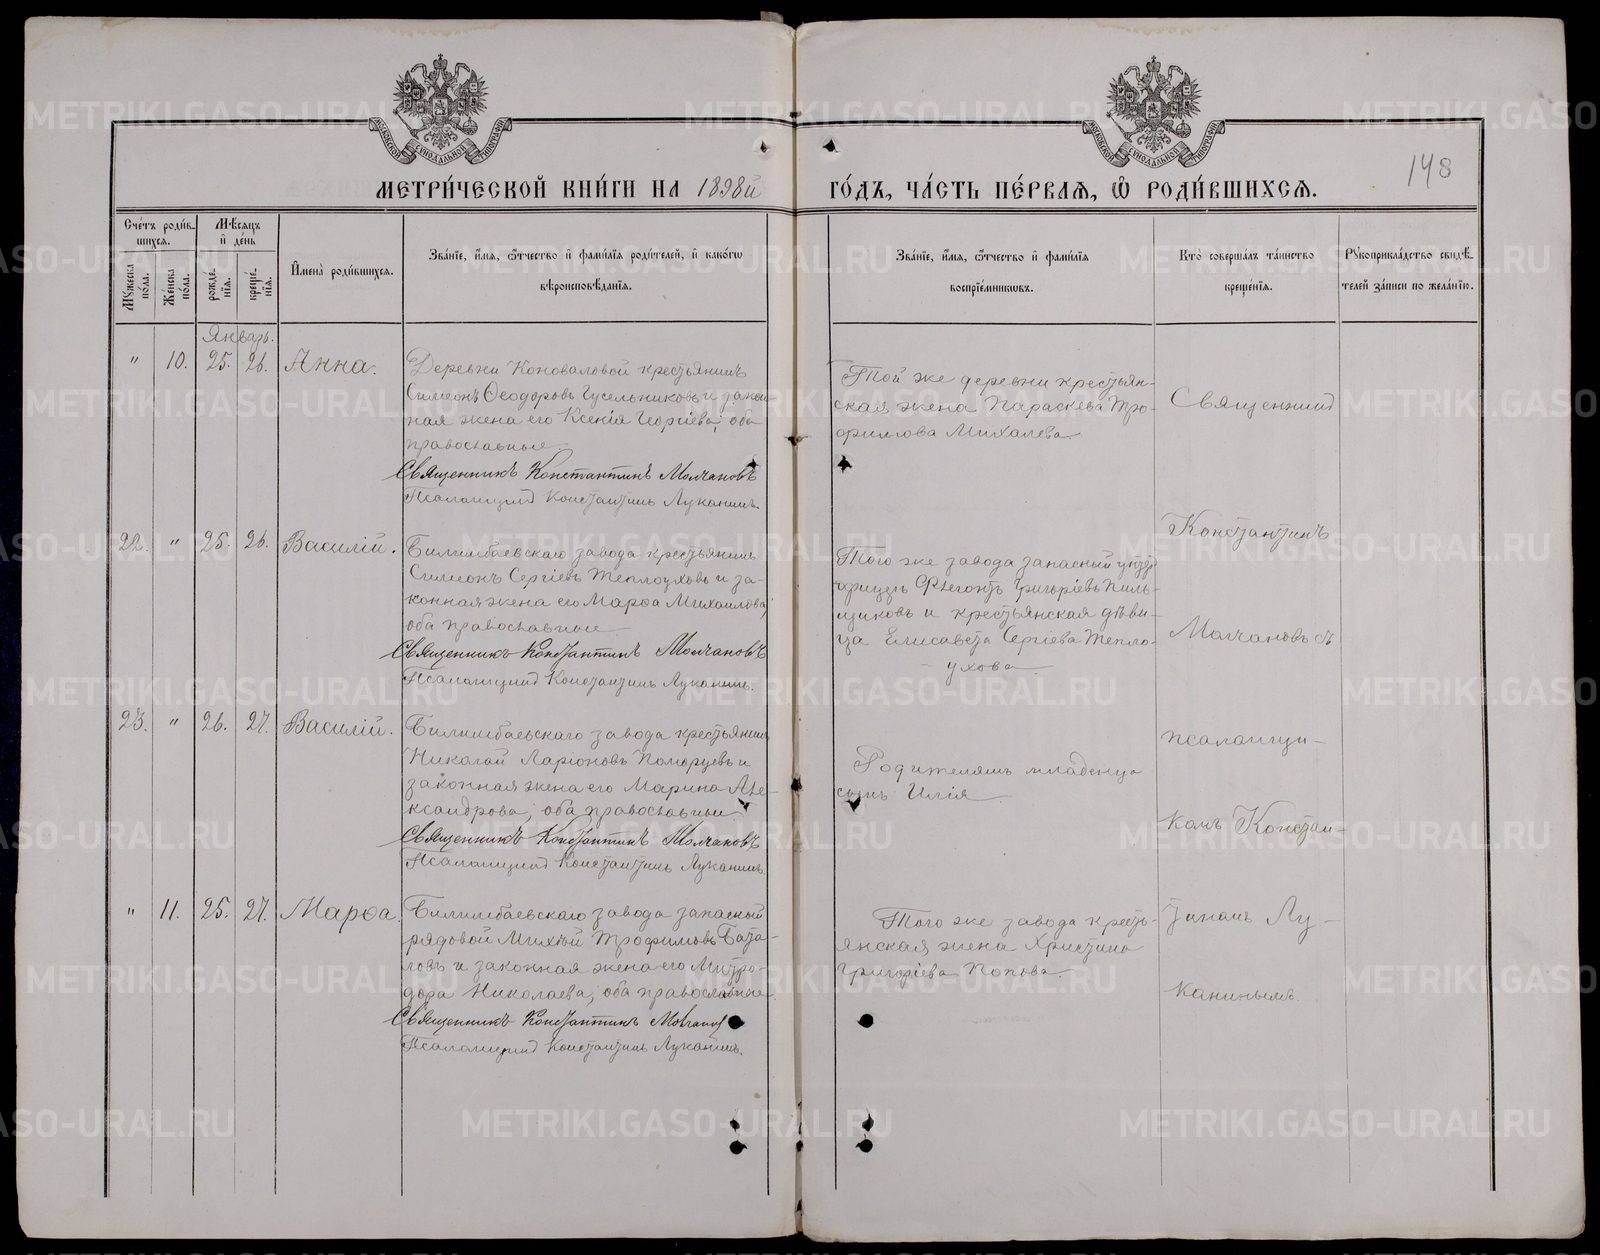 МЕТРИ́ЧЕСКОЙ КНИ́ГИ НА 1898й
ГО́ДЪ, ЧА́СТЬ ПЕ́РВАЯ, Ѿ РОДИ́ВШИХСЯ.
148
Сче́тъ роди́вшихся.
Му́жеска по́ла.
Же́нска по́ла.
Мѣ́сяцъ и́ де́нь
рожде́нїя.
креще́нїя.
И҆мена̀ роди́вшихся.
Зва́нїе, и́мя, ѻ҆́тчество и҆ фами́лїя роди́телей, и҆ како́гѡ
вѣроисповѣ́данїя.
Зва́нїе, и́мя, ѻ҆́тчество и҆ фами́лїя
воспрїе́мникѡвъ.
Кто̀ соверша́лъ та́инство
креще́нїя.
Рꙋкоприкла́дство свидѣ́-
телей за́писи по жела́нїю.
Январь.
" 10. 25. 26. Анна.
Деревни Коноваловой крестьянинъ
Симеонъ Ѳеодоровъ Гусельниковъ и закон-
ная жена его Ксенія Георгіева, оба
православные
Священникъ Константинъ Молчановъ
Псаломщикъ Константинъ Луканинъ.
Той же деревни крестьян-
ская жена Параскева Тро-
фимова Михалева
22. " 25. 26. Василій.
Билимбаевскаго завода крестьянинъ
Симеонъ Сергіевъ Теплоуховъ и за-
конная жена его Марѳа Михаилова,
оба православные
Священникъ Константинъ Молчановъ
Псаломщикъ Константинъ Луканинъ.
Того же завода запасный унтеръ
офицеръ Флегонтъ Григоріевъ Пиль-
щиковъ и крестьянская дѣви-
ца Елисавета Сергіева Тепло-
ухова
23. " 26. 27. Василій.
Билимбаевскаго завода крестьянинъ
Николай Ларіоновъ и
законная жена его Марина Але-
ксандрова, оба православные.
Священникъ Константинъ Молчановъ
Псаломщикъ Константинъ Луканинъ.
Родителямъ младенца
сынъ Илія
" 11. 25. 27. Марѳа.
Билимбаевскаго завода запасный
рядовой Михѣй Трофимовъ Бата-
ловъ и законная жена его Митро-
дора Николаева, оба православные.
Священникъ Константинъ Молчановъ
Псаломщикъ Константинъ Луканинъ.
Того же завода кресть-
янская жена Христина
Григоріева Попова.
Священникъ
Константинъ
Молчановъ съ
псаломщи-
комъ Констан-
тиномъ Лу-
канинымъ.
METRIKI.GASO-URAL.RU